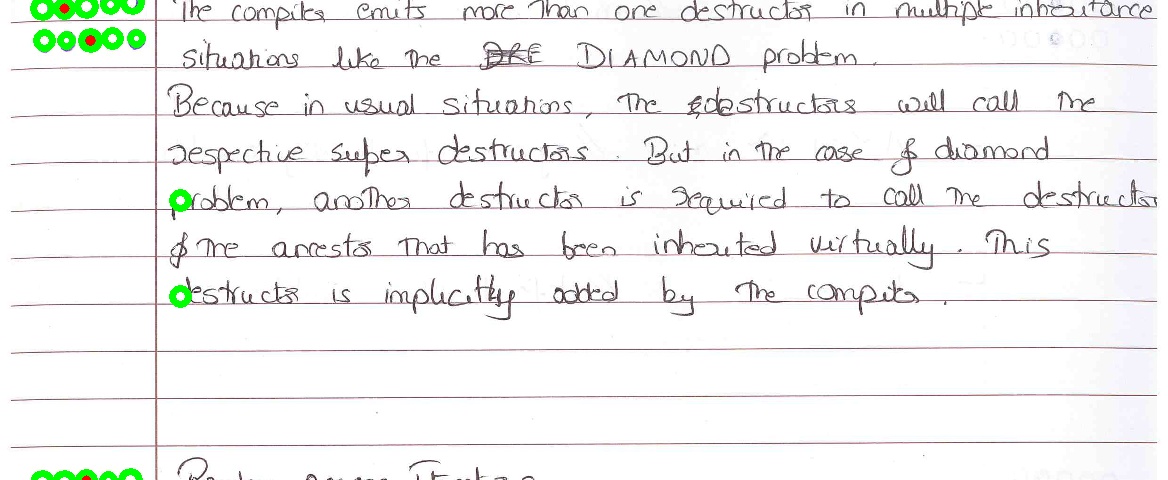 The compiler emits more than one destructor in multiple inheritance
situations like the DIAMOND problem.
Because in usual situations, the destructors will call the
respective super destructors. But in the case of diamond
problem, another destructor is required to call the destructor
of the ancestor that has been inherited virtually. This
destructor is implicitly added by the compiler.